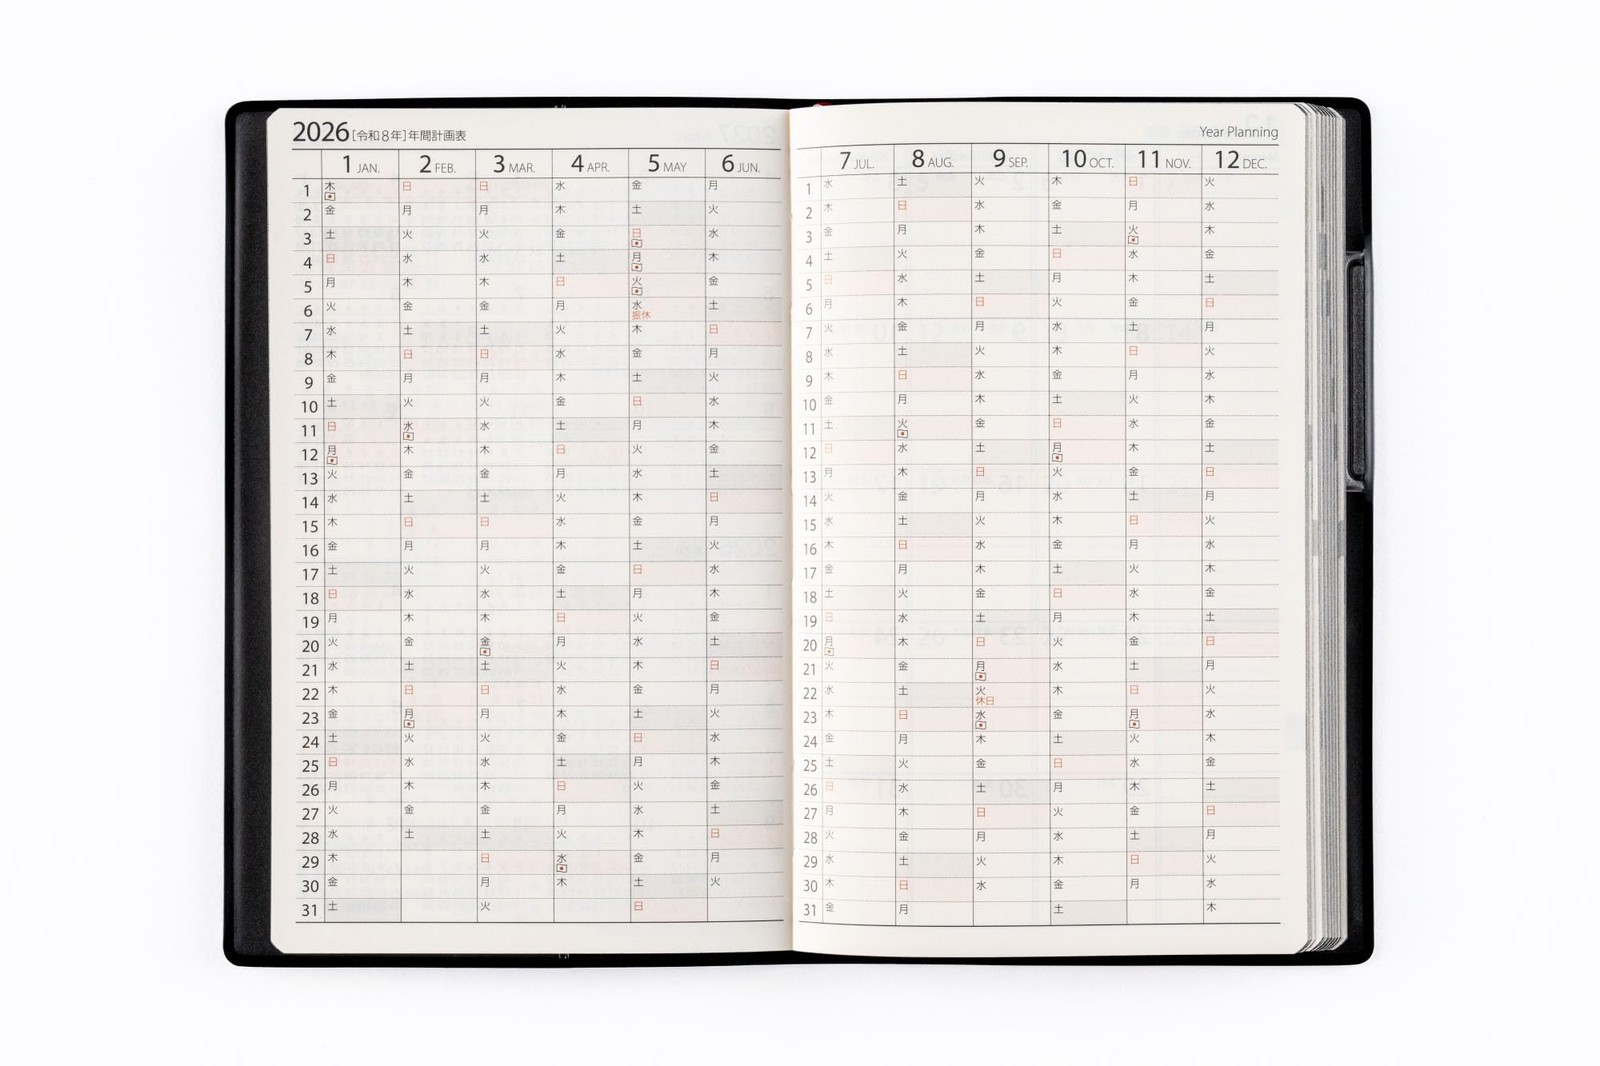 2026[令和8年]年間計画表
1 JAN. 2 FEB. 3 MAR. 4 APR. 5 MAY 6 JUN.
1 木 日 日 水 金 月
2 金 月 月 木 土 火
3 土 火 火 金 日 水
4 日 水 水 土 月 木
5 月 木 木 日 火 金
6 火 金 金 月 水 振休 土
7 水 土 土 火 木 日
8 木 日 日 水 金 月
9 金 月 月 木 土 火
10 土 火 火 金 日 水
11 日 水 水 土 月 木
12 月 木 木 日 火 金
13 火 金 金 月 水 土
14 水 土 土 火 木 日
15 木 日 日 水 金 月
16 金 月 月 木 土 火
17 土 火 火 金 日 水
18 日 水 水 土 月 木
19 月 木 木 日 火 金
20 火 金 金 月 水 土
21 水 土 土 火 木 日
22 木 日 日 水 金 月
23 金 月 月 木 土 火
24 土 火 火 金 日 水
25 日 水 水 土 月 木
26 月 木 木 日 火 金
27 火 金 金 月 水 土
28 水 土 土 火 木 日
29 木 日 水 金 月
30 金 月 木 土 火
31 土 火 日
Year Planning
7 JUL. 8 AUG. 9 SEP. 10 OCT. 11 NOV. 12 DEC.
1 水 土 火 木 日 火
2 木 日 水 金 月 水
3 金 月 木 土 火 木
4 土 火 金 日 水 金
5 日 水 土 月 木 土
6 月 木 日 火 金 日
7 火 金 月 水 土 月
8 水 土 火 木 日 火
9 木 日 水 金 月 水
10 金 月 木 土 火 木
11 土 火 金 日 水 金
12 日 水 土 月 木 土
13 月 木 日 火 金 日
14 火 金 月 水 土 月
15 水 土 火 木 日 火
16 木 日 水 金 月 水
17 金 月 木 土 火 木
18 土 火 金 日 水 金
19 日 水 土 月 木 土
20 月 木 日 火 金 日
21 火 金 月 水 土 月
22 水 土 火 休日 木 日 火
23 木 日 水 金 月 水
24 金 月 木 土 火 木
25 土 火 金 日 水 金
26 日 水 土 月 木 土
27 月 木 日 火 金 日
28 火 金 月 水 土 月
29 水 土 火 木 日 火
30 木 日 水 金 月 水
31 金 月 土 木